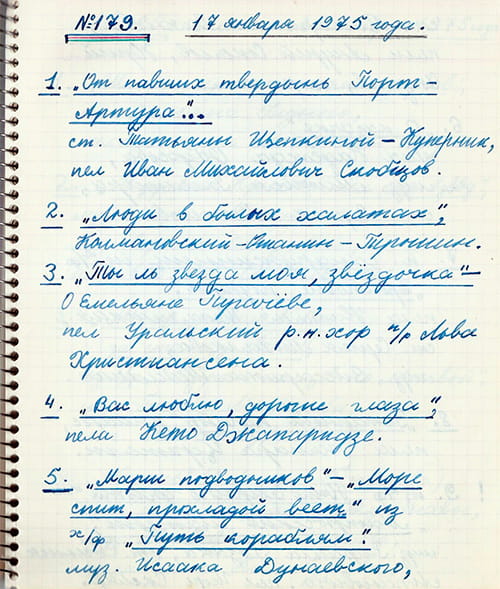 №179. 17 января 1975 года.
1. „От павших твердынь Порт-
Артура"...
ст. Татьяны Щепкиной-Куперник,
пел Иван Михайлович Скобцов.
2. „Люди в белых халатах",
Колмановский-Ошанин-Трошин.
3. „Ты ль звезда моя, звёздочка" -
О Емельяне Пугачёве,
пел Уральский р.н.хор п/р Льва
Христиансена.
4. „Вас люблю, дорогие глаза",
пела Кето Джапаридзе.
5. „Марш подводников" - „Море
спит, прохладой веет" из
х/ф „Путь кораблям".
муз. Исаака Дунаевского,